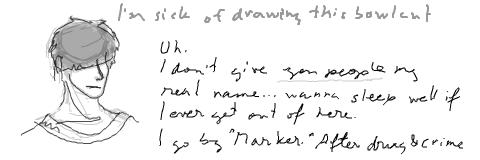 I'm sick of drawing this bowlcut
Uh.
I don't give you people my
real name... wanna sleep well if
I ever get out of here.
I go by "Marker." After drug & crime